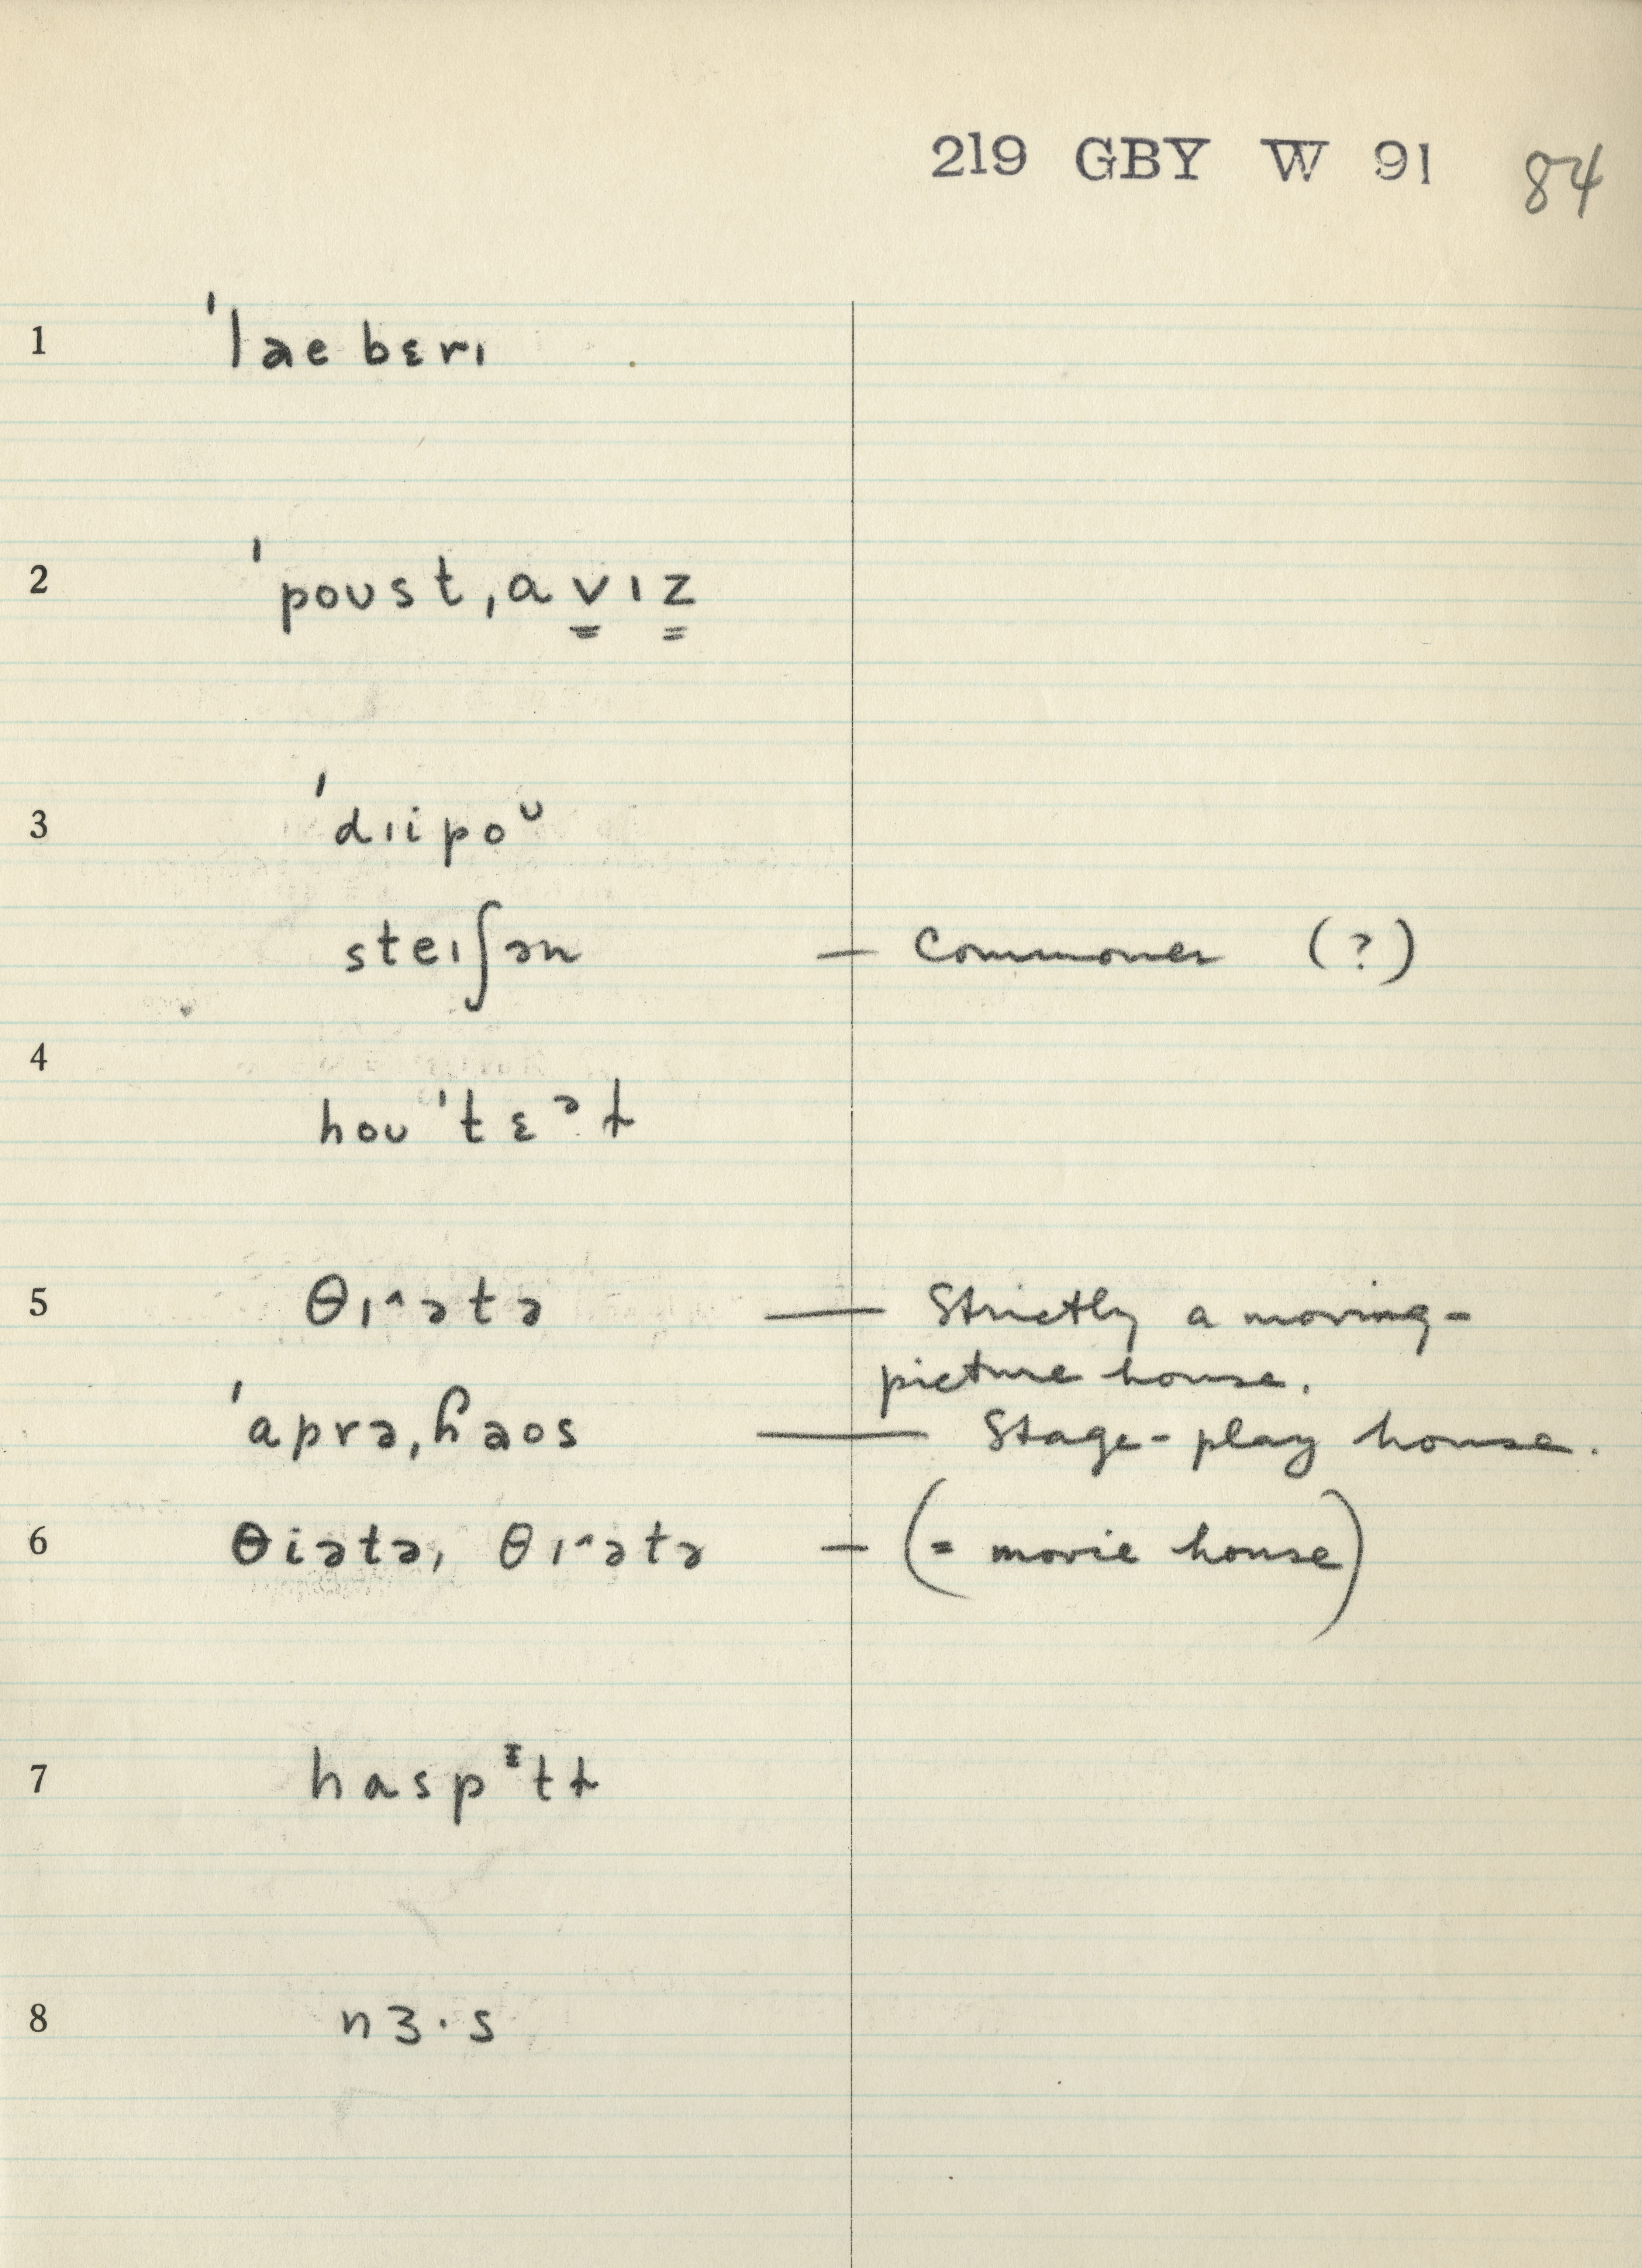 219 GBY W 91 84
1 ˈlaebɛrɪ
2 ˈpoʊstˌɑvɪz
3 ˈdɪipoᶷ
steɪʃən — Commoner (?)
4
hoʊˈtɛᵊɫ
5 θɪ˄ətə — Strictly a moving-
picture house.
ˈɑprəˌɦaos — Stage-play house.
6 θiətə, θɪ˄ətə — (= movie house)
7 hɑspᶦtɫ
8 nɜ·s